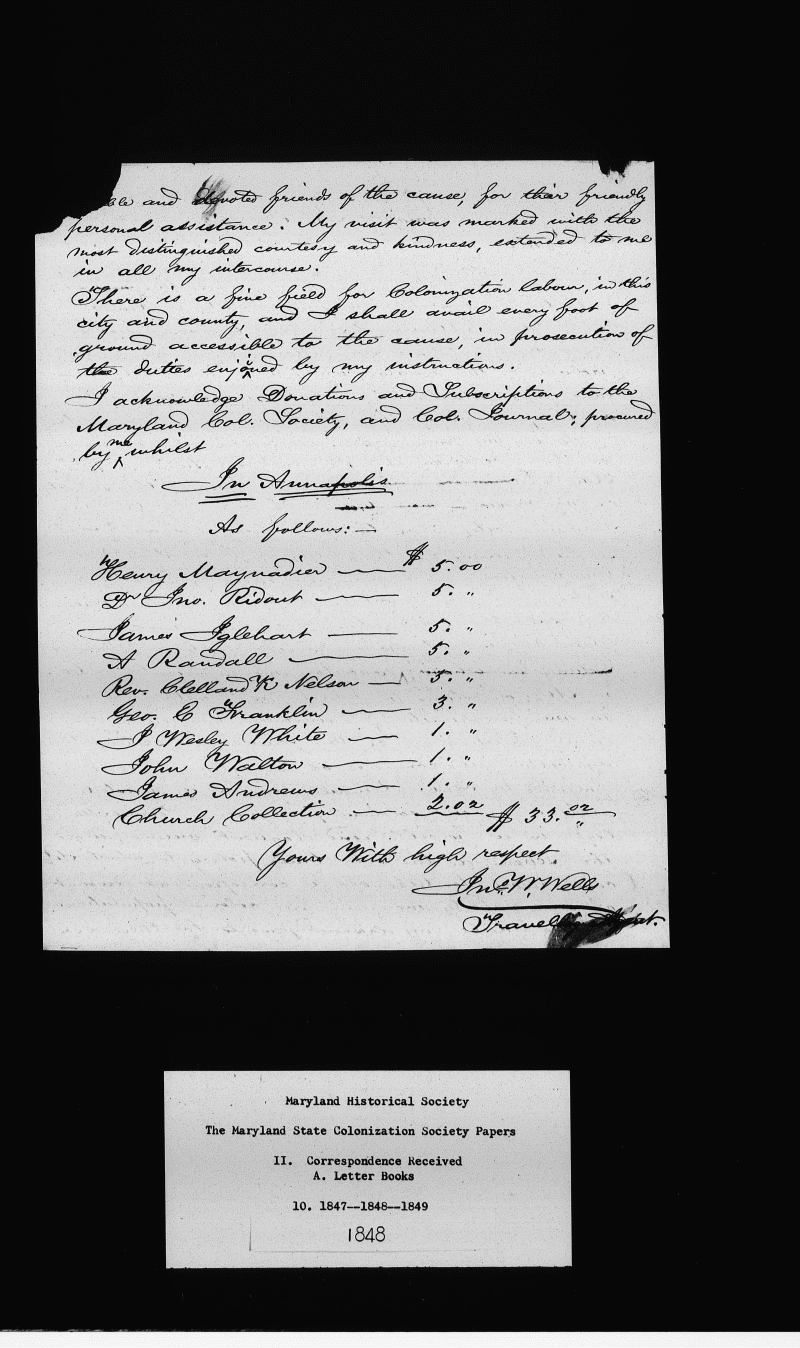 ble and devoted friends of the cause for their friendly
personal assistance. My visit was marked with the
most distinguished courtesy and kindness, extended to me
in all my intercourse.
There is a fine field for Colonization labour, in this
city and county, and I shall avail every foot of
ground accessible to the cause, in prosecution of
the duties enjoined by my instructions.
I acknowledge Donations and Subscriptions to the
Maryland Col. Society, and Col. Journal, procured
by me whilst
In Annapolis
As follows:—
Henry Maynadier — $ 5.00
Dr Jno. Ridout — 5. "
James Iglehart — 5. "
A Randall — 5. "
Rev. Clelland K Nelson — 5. "
Geo. E Franklin — 3. "
J Wesley White — 1. "
John Walton — 1. "
James Andrews — 1. "
Church Collection — 2.02 $ 33.02
Yours With high respect.
Jno. W. Wells
Travell'g Agent.
Maryland Historical Society
The Maryland State Colonization Society Papers
II. Correspondence Received
A. Letter Books
10. 1847--1848--1849
1848